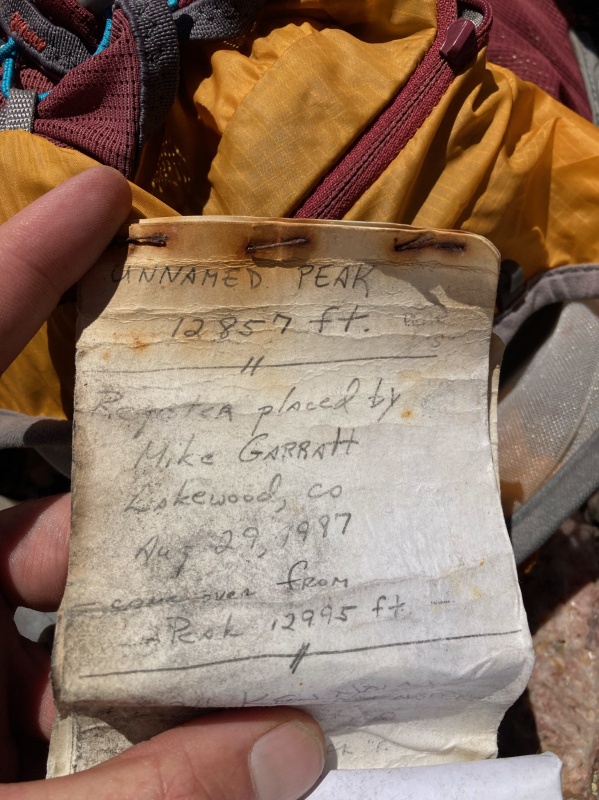 UNNAMED PEAK
12857 ft.
Register placed by
Mike GARRATT
Lakewood, CO
Aug 29, 1987
— come over from
→ Peak 12995 ft —